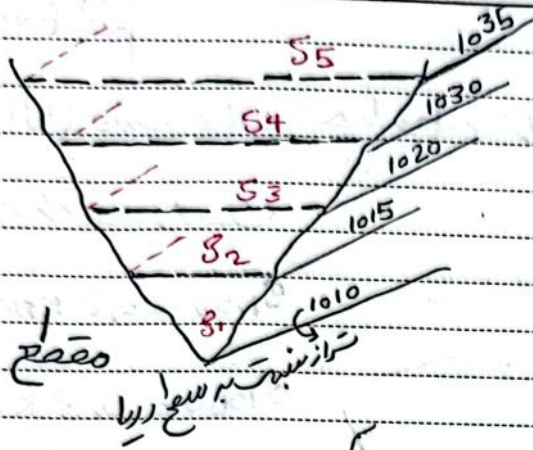 S5 1035
S4 1030
S3 1020
S2 1015
S1 1010
مقطع
تراز نسبت به سطح دریا